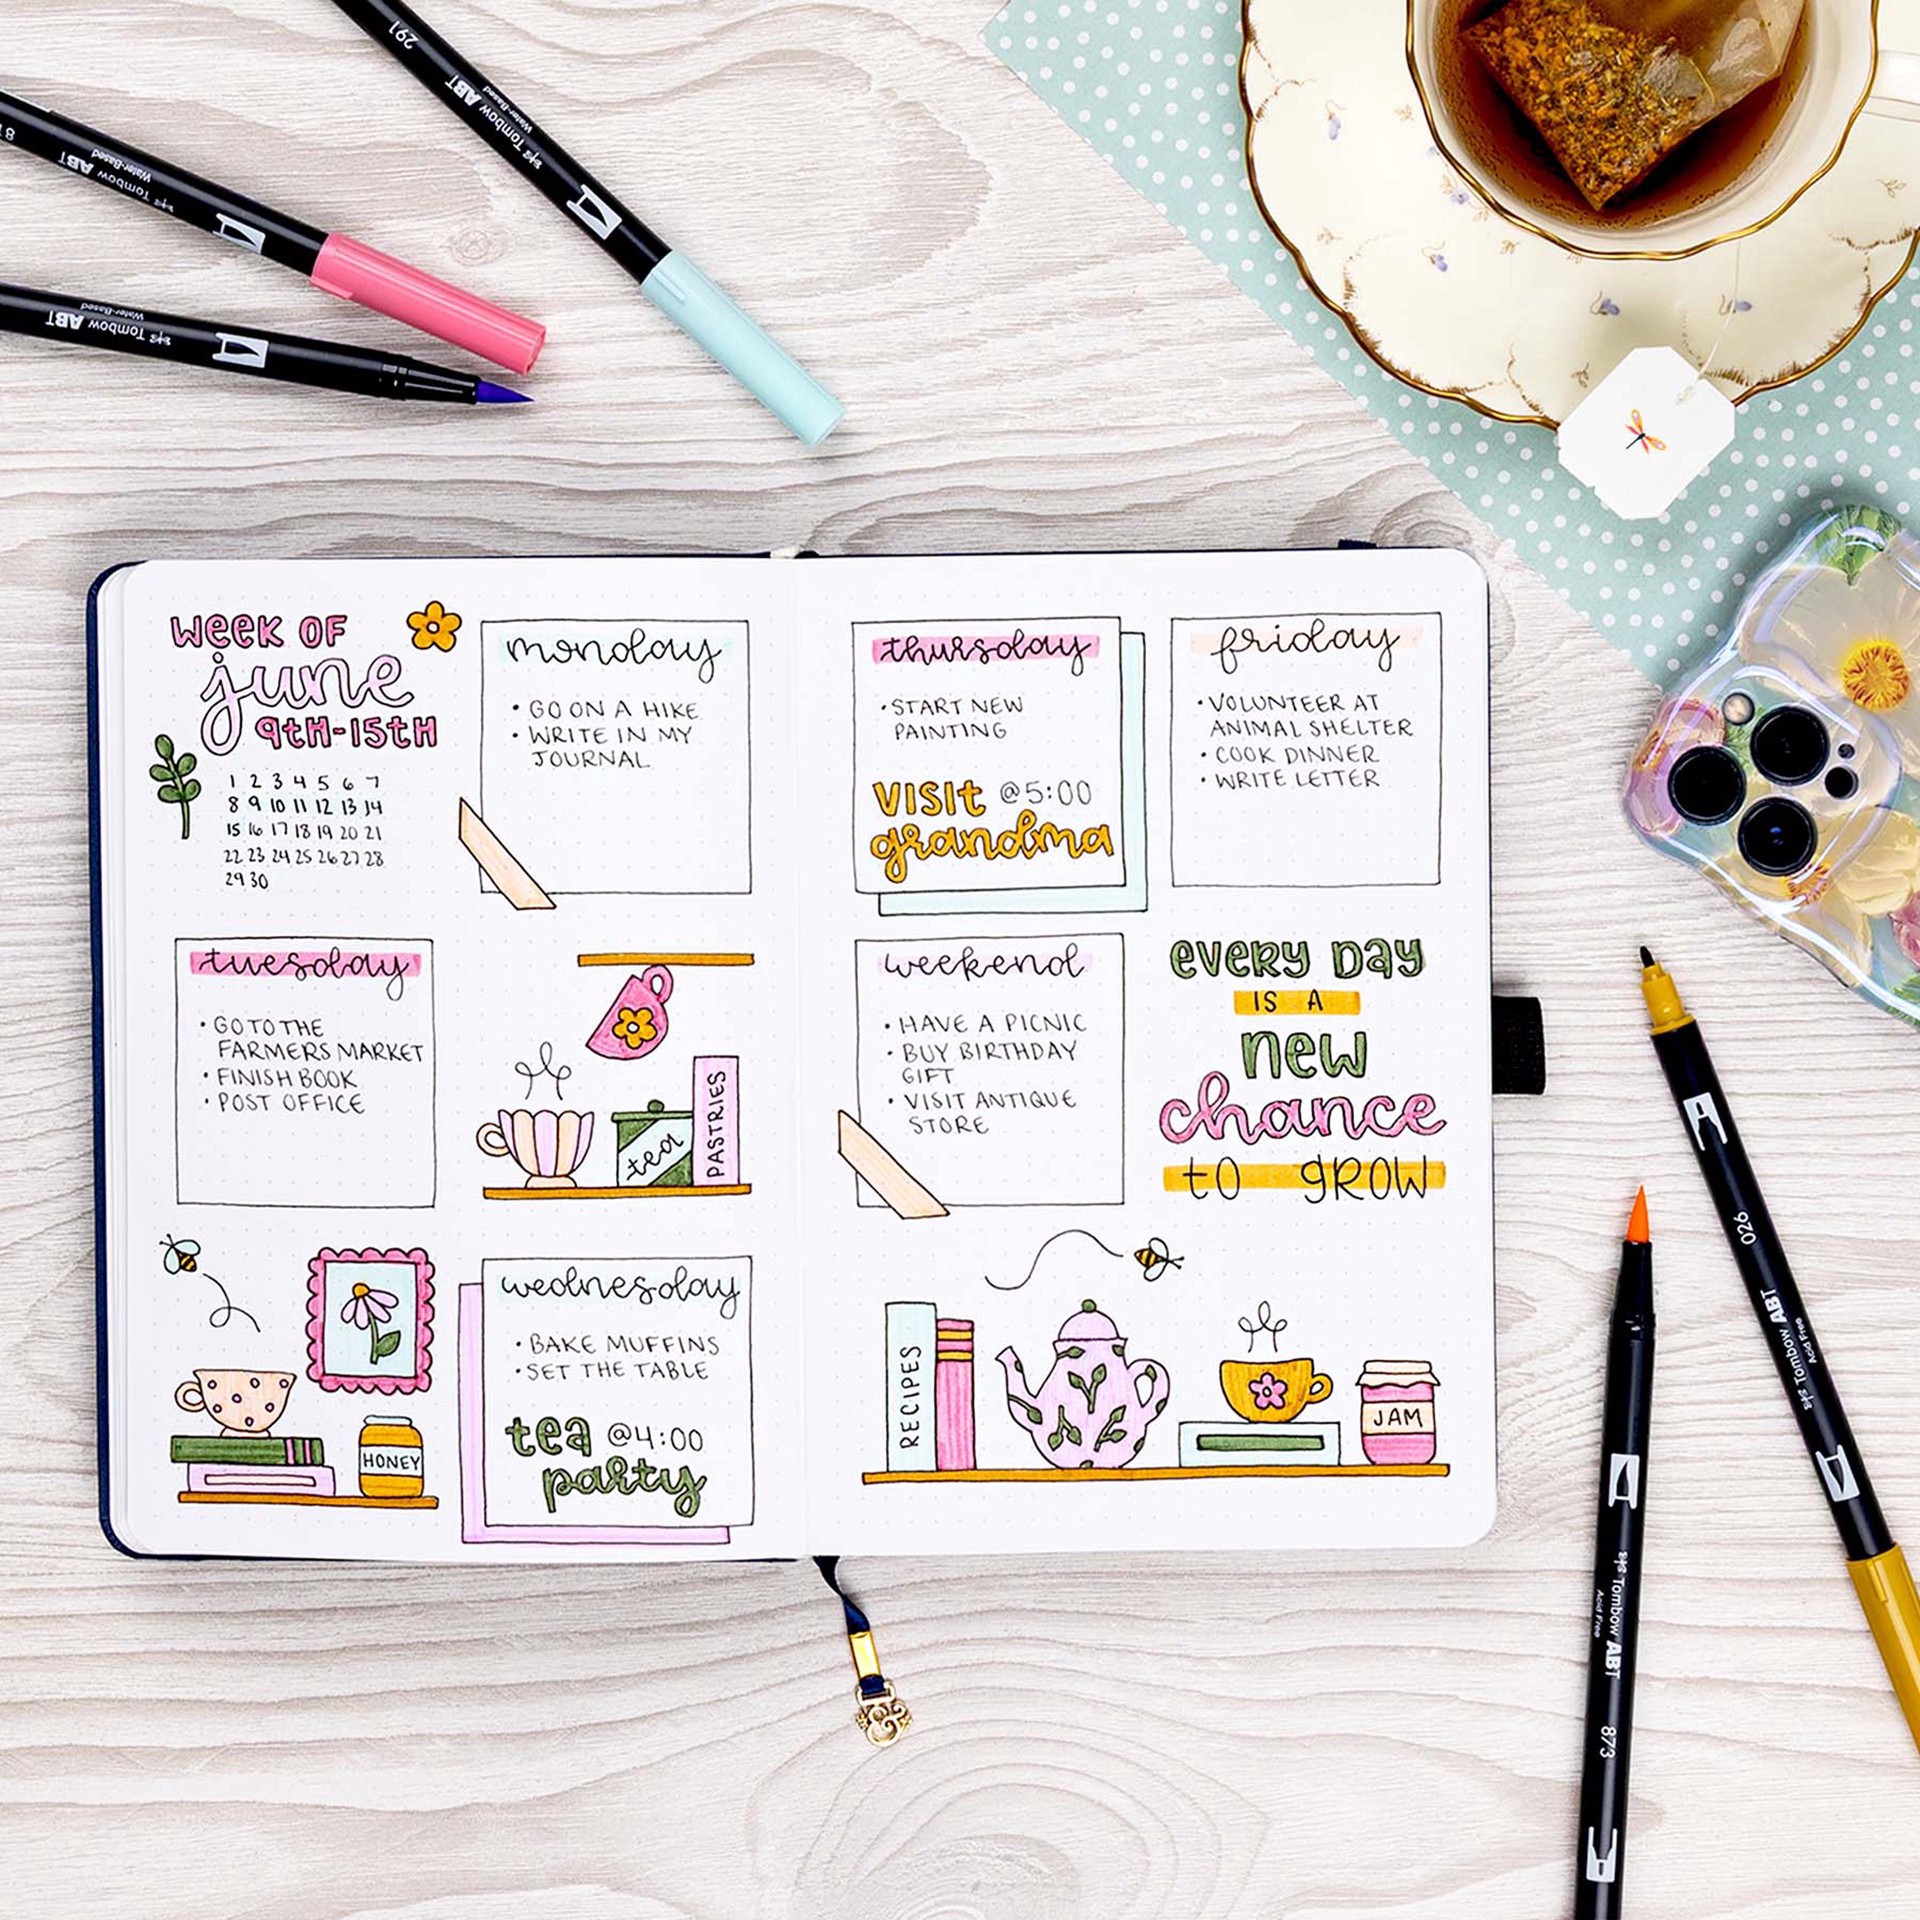 291
Tombow ABT
Water-Based
Tombow ABT
Water-Based
Tombow ABT
Water-Based
WEEK OF
june
9tH-15tH
1 2 3 4 5 6 7
8 9 10 11 12 13 14
15 16 17 18 19 20 21
22 23 24 25 26 27 28
29 30
monday
• GO ON A HIKE
• WRITE IN MY
JOURNAL
tuesday
• GO TO THE
FARMERS MARKET
• FINISH BOOK
• POST OFFICE
tea
PASTRIES
HONEY
wednesday
• BAKE MUFFINS
• SET THE TABLE
tea @4:00
party
thursday
• START NEW
PAINTING
VISIt @5:00
grandma
friday
• VOLUNTEER AT
ANIMAL SHELTER
• COOK DINNER
• WRITE LETTER
weekend
• HAVE A PICNIC
• BUY BIRTHDAY
GIFT
• VISIT ANTIQUE
STORE
eveRy Day
IS A
new
chance
to gROW
RECIPES
JAM
026
Tombow ABT
Acid Free
Tombow ABT
Acid Free
873